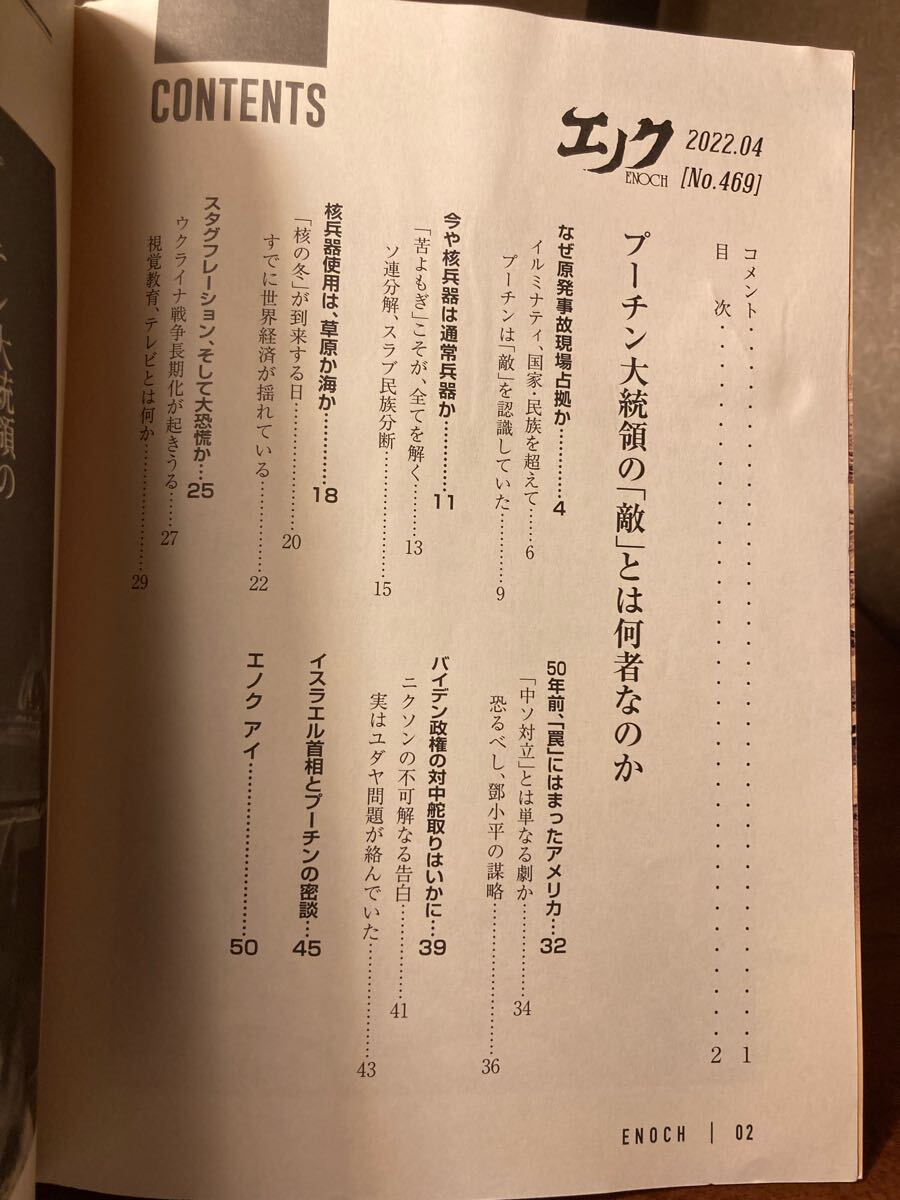 CONTENTS
エノク
ENOCH
2022.04
[No.469]
コメント・・・・・・・・・・・・・・・・・・・・・・・・・・・・・・1
目　次・・・・・・・・・・・・・・・・・・・・・・・・・・・・・・2
プーチン大統領の「敵」とは何者なのか
なぜ原発事故現場占拠か…………4
イルミナティ、国家・民族を超えて……6
プーチンは「敵」を認識していた…………9
今や核兵器は通常兵器か…………11
「苦よもぎ」こそが、全てを解く………13
ソ連分解、スラブ民族分断………………15
核兵器使用は、草原か海か…………18
「核の冬」が到来する日………………20
すでに世界経済が揺れている……………22
スタグフレーション、そして大恐慌か…25
ウクライナ戦争長期化が起きうる……27
視覚教育、テレビとは何か………………29
50年前、「罠」にはまったアメリカ…32
「中ソ対立」とは単なる劇か……………34
恐るべし、鄧小平の謀略…………………36
バイデン政権の対中舵取りはいかに…39
ニクソンの不可解なる告白……………41
実はユダヤ問題が絡んでいた……………43
イスラエル首相とプーチンの密談…45
エノク アイ…………………50
大統領の
ENOCH | 02